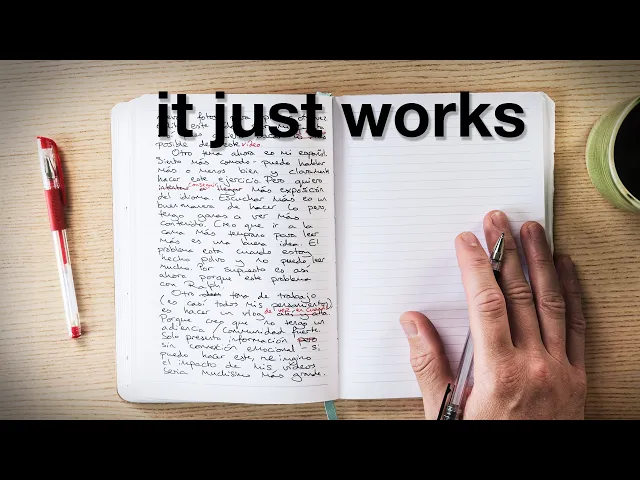 it just works
posible de este video
Otro tema ahora es mi español.
Siento más comodo puedo hablar
más o menos bien y claramente
hacer este ejercicio. Pero quiero
intentar conseguir a llegar más exposición
del idioma. Escuchar más es un
buen manera de hacer lo pero,
tengo ganas a ver más
contenido. Creo que ir a la
cama más temprano para leer
más es una buena idea. El
problema esta cuando estoy
hecho polvo y no puedo leer
mucho. Por supuesto es así
ahora porque este problema
con Ralph!
Otro tema de trabajo
(es casi todos mis pensamientos)
es hacer un vlog de vez en cuando
Porque creo que no tengo un
adiencia / comunidad fuerte.
Solo presento información pero
sin connexión emocional. Si
puedo hacer este, me imagino
el impacto de mis videos
seria muchisimo más grande.